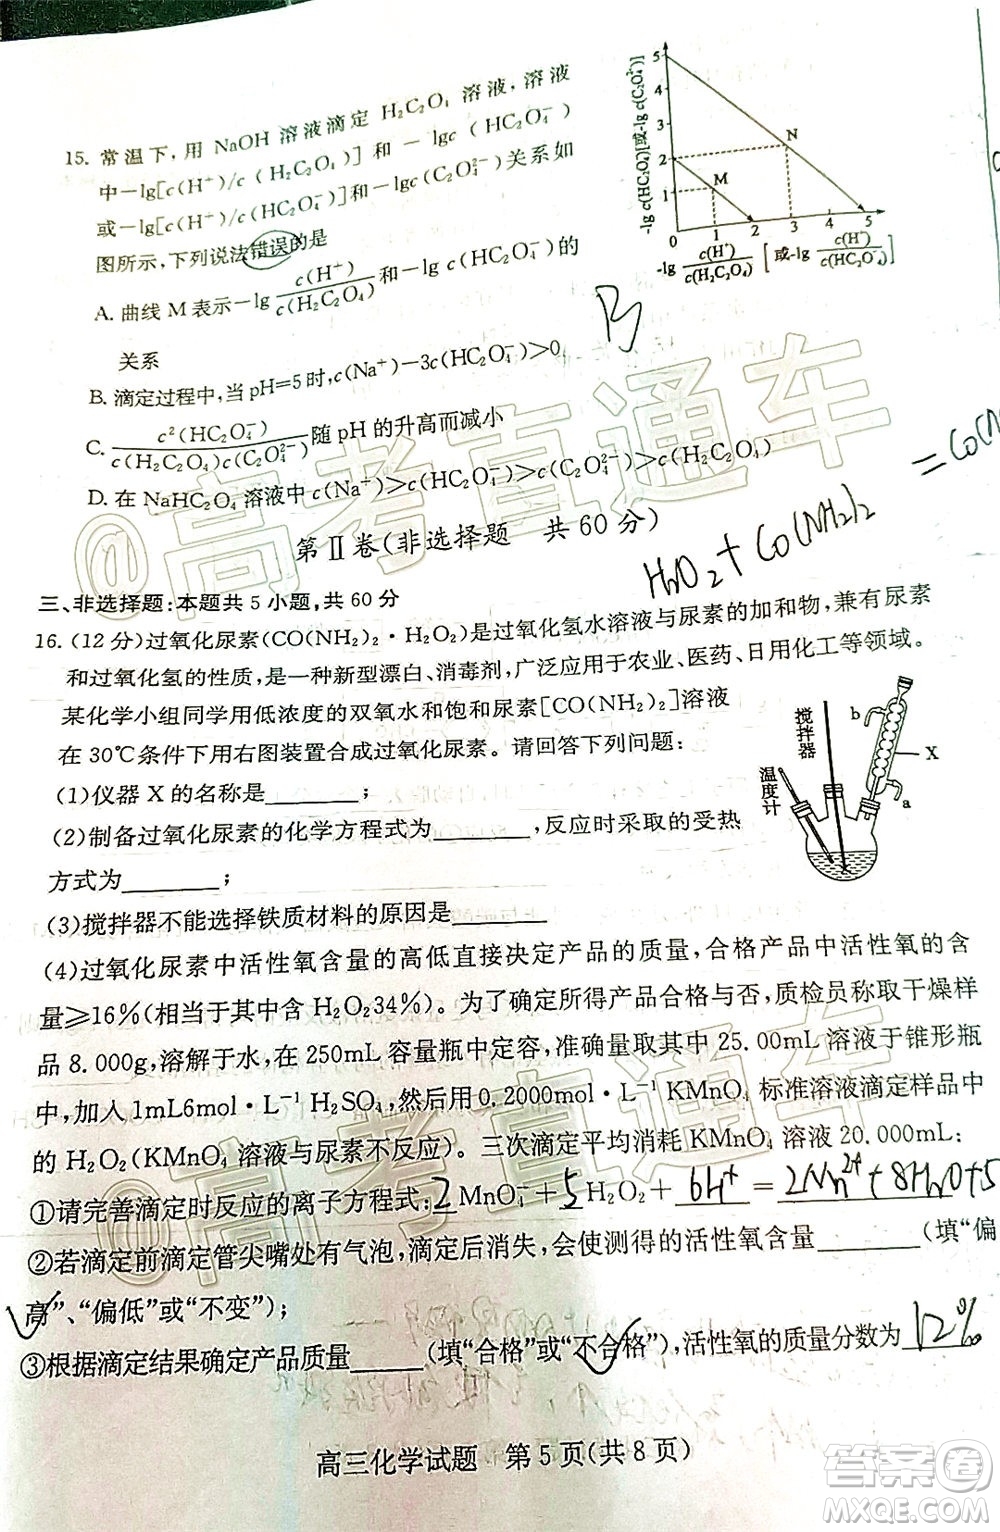 15. 常温下,用 NaOH 溶液滴定 H₂C₂O₄ 溶液,溶液
中-lg[c(H⁺)/c(H₂C₂O₄)] 和 -lgc(HC₂O₄⁻)
或-lg[c(H⁺)/c(HC₂O₄⁻)]和-lgc(C₂O₄²⁻)关系如
图所示,下列说法错误的是
A. 曲线 M 表示-lg c(H⁺)/c(H₂C₂O₄) 和-lgc(HC₂O₄⁻)的
关系
B. 滴定过程中,当 pH=5 时,c(Na⁺)-3c(HC₂O₄⁻)>0
C. c²(HC₂O₄⁻)/c(H₂C₂O₄)c(C₂O₄²⁻) 随 pH 的升高而减小
D. 在 NaHC₂O₄ 溶液中 c(Na⁺)>c(HC₂O₄⁻)>c(C₂O₄²⁻)>c(H₂C₂O₄)
-lg c(HC₂O₄⁻)[或-lg c(C₂O₄²⁻)]
5
4
3
2
1
N
M
0 1 2 3 4 5
-lg c(H⁺)/c(H₂C₂O₄) [或-lg c(H⁺)/c(HC₂O₄⁻)]
B
第Ⅱ卷(非选择题 共 60 分)
H₂O₂ + CO(NH₂)₂
三、非选择题:本题共 5 小题,共 60 分
16. (12 分)过氧化尿素(CO(NH₂)₂·H₂O₂)是过氧化氢水溶液与尿素的加和物,兼有尿素
和过氧化氢的性质,是一种新型漂白、消毒剂,广泛应用于农业、医药、日用化工等领域。
某化学小组同学用低浓度的双氧水和饱和尿素[CO(NH₂)₂]溶液
在 30℃条件下用右图装置合成过氧化尿素。请回答下列问题:
(1)仪器 X 的名称是______;
(2)制备过氧化尿素的化学方程式为______,反应时采取的受热
方式为______;
搅拌器
温度计
b
X
a
(3)搅拌器不能选择铁质材料的原因是______
(4)过氧化尿素中活性氧含量的高低直接决定产品的质量,合格产品中活性氧的含
量≥16%(相当于其中含 H₂O₂34%)。为了确定所得产品合格与否,质检员称取干燥样
品 8.000g,溶解于水,在 250mL 容量瓶中定容,准确量取其中 25.00mL 溶液于锥形瓶
中,加入 1mL6mol·L⁻¹ H₂SO₄,然后用 0.2000mol·L⁻¹ KMnO₄ 标准溶液滴定样品中
的 H₂O₂(KMnO₄ 溶液与尿素不反应)。三次滴定平均消耗 KMnO₄ 溶液 20.000mL:
①请完善滴定时反应的离子方程式:2 MnO₄⁻+5 H₂O₂+ 6H⁺ = 2Mn²⁺+8H₂O+5
②若滴定前滴定管尖嘴处有气泡,滴定后消失,会使测得的活性氧含量______(填“偏
高”、“偏低”或“不变”);
③根据滴定结果确定产品质量______(填“合格”或“不合格”),活性氧的质量分数为 12%
高三化学试题 第 5 页(共 8 页)
@高考直通车
@高考直通车
答案圈
MXQE.COM